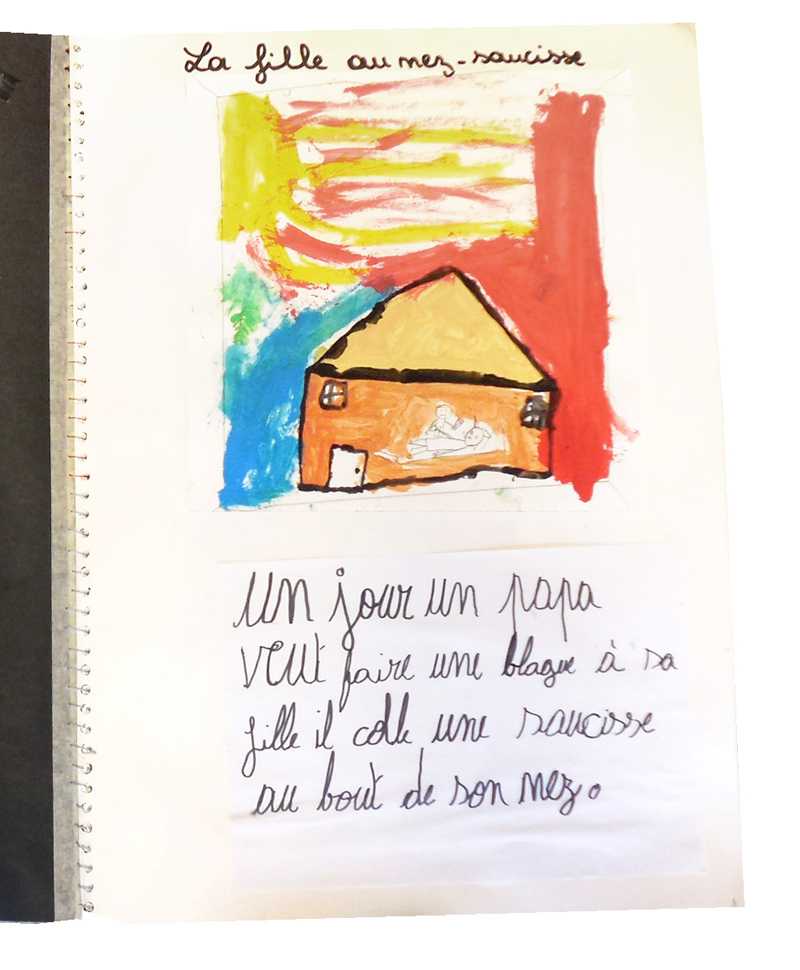 La fille au nez-saucisse
Un jour un papa
veut faire une blague à sa
fille il colle une saucisse
au bout de son nez.